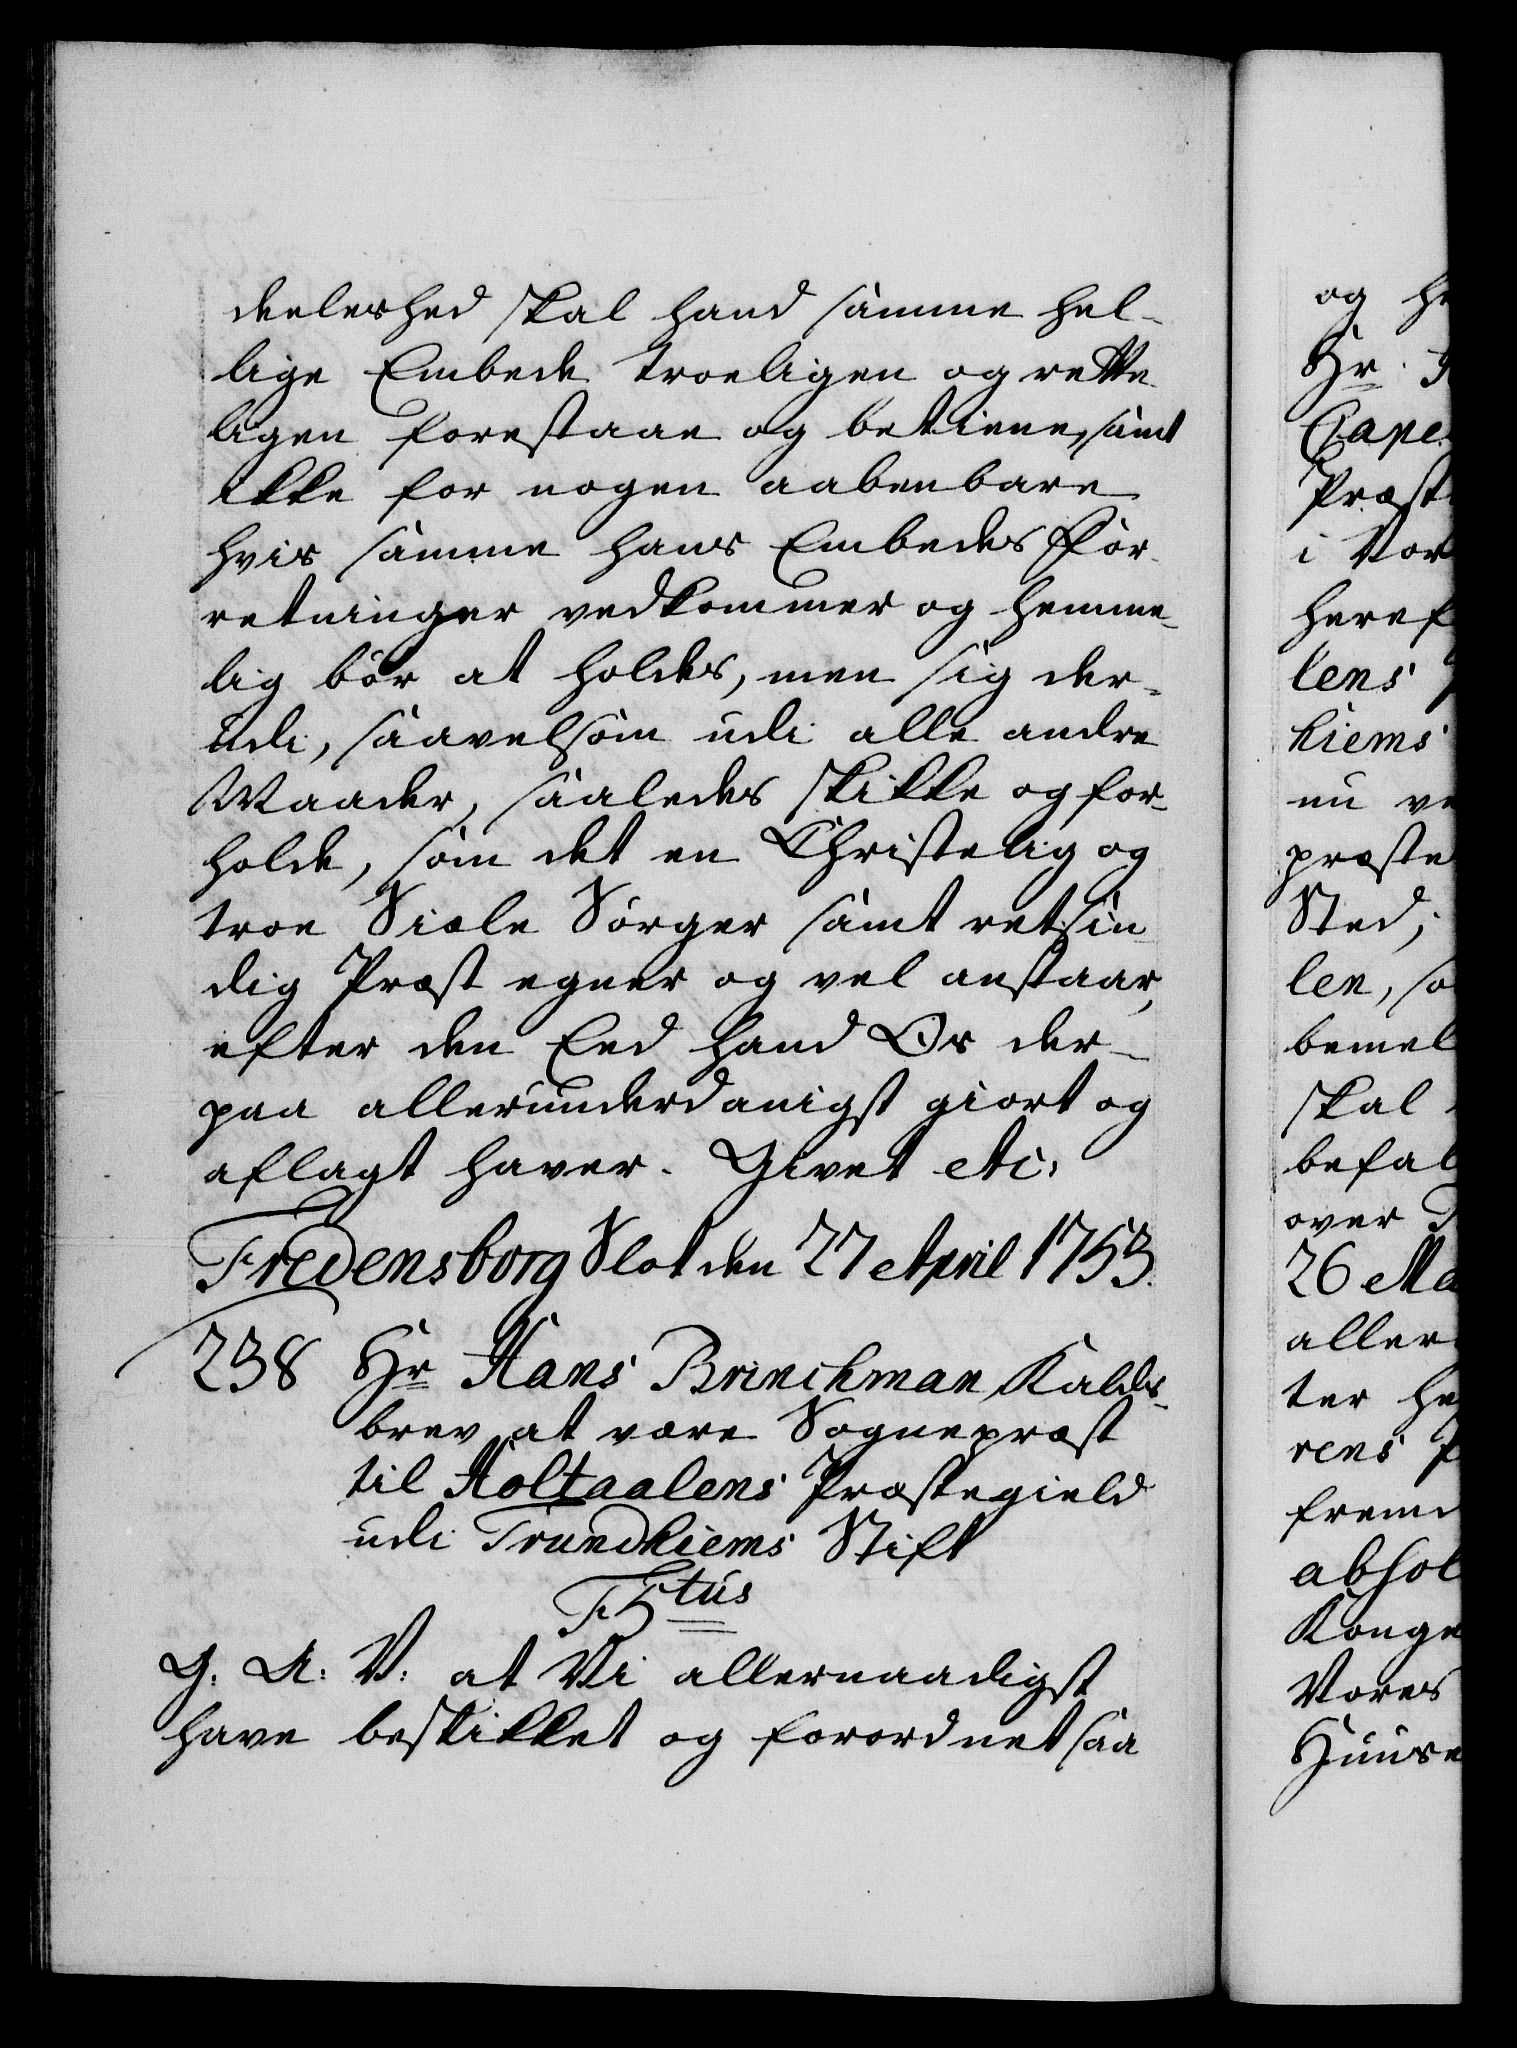 deeleshed skal hand samme hel-
lige Embede troeligen og rette
ligen forestaae og betiene, samt
ikke for nogen aabenbare
hvis samme hans Embedes For-
retninger vedkommer og hemme-
lig bör at holdes, men sig der-
udi, saavelsom udi alle andre
Maader, saaledes skikke og for-
holde, som det en Christelig og
troe Siæle Sörger samt retsin
dig Præst egner og vel anstaar,
efter den Eed hand Os der-
paa allerunderdanigst giort og
aflagt haver. Givet etc:
Fredensborg Slot den 27 April 1753.
238 Hr Hans Brinchman Kalds-
brev at være Sognepræst
til Holtaalens Præstegield
udi Trundhiems Stift
F5tus
G. A: V: at Vi allernaadigst
have beskikket og forordnet saa
og he
Hr.
Cape
Præst
i Vor
heref
lens
hiems
nu ve
præste
Sted;
len, so
bemel
skal
befal
over
26 Ma
aller
ter he
rens
fremd
absol
Konge
Vores
Huuse